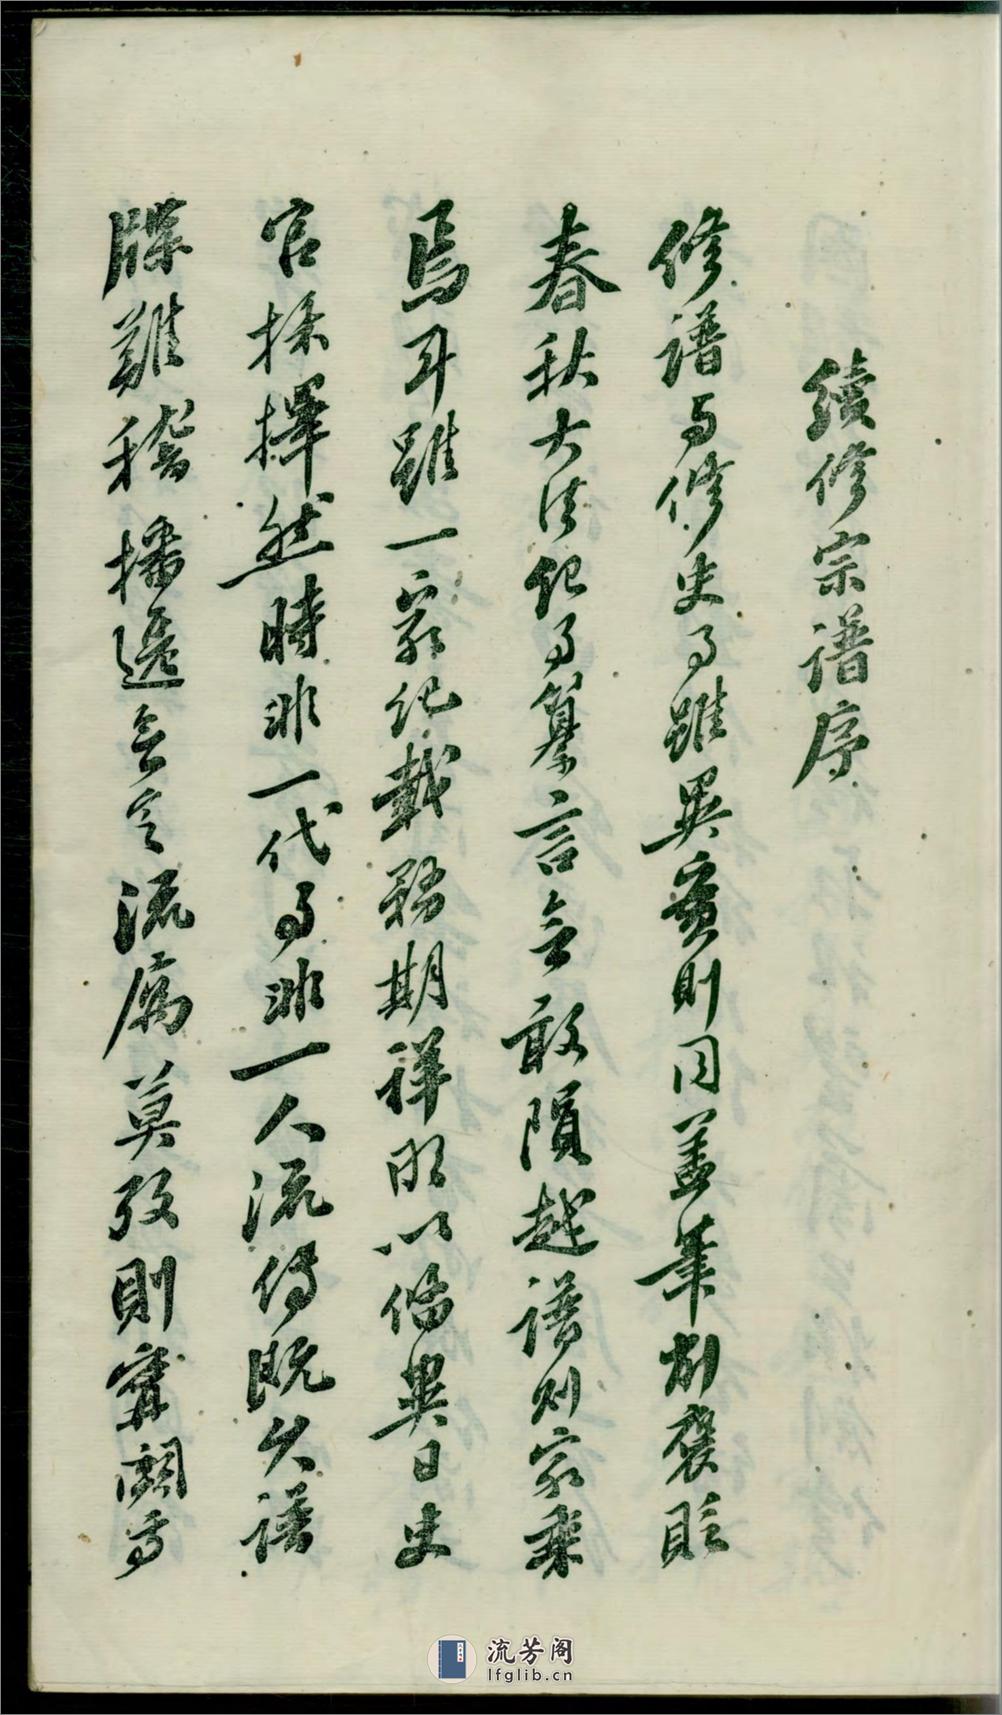 續修宗譜序
修譜与修史事雖異實則同盖筆削褒貶
春秋大法纪事纂言無敢隕越譜則家乘
焉耳雖一家纪載務期祥明以俻異日史
官採擇然時非一代事非一人流傳既久譜
牒難稽播遷無定流寓莫攷則寧闕事
流芳阁
lfglib.cn